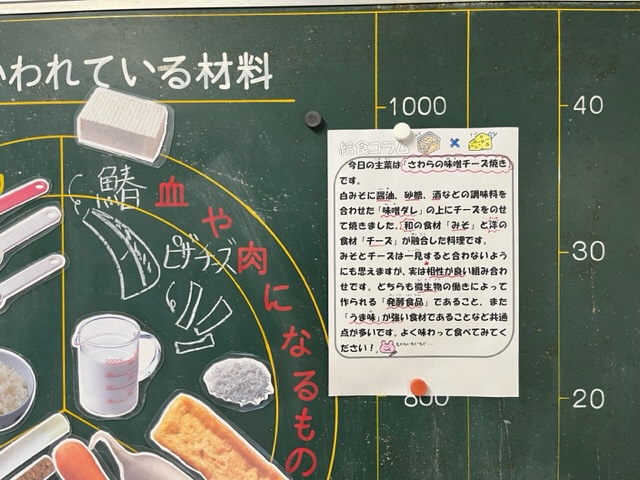 われている材料
鰆
ピザチーズ
血や肉になるもの
1000
800
40
30
20
給食コラム
今日の主菜は「さわらの味噌チーズ焼き」
です。
白みそに醤油、砂糖、酒などの調味料を
合わせた「味噌ダレ」の上にチーズをのせ
て焼きました。和の食材「みそ」と洋の
食材「チーズ」が融合した料理です。
みそとチーズは一見すると合わないよう
にも思えますが、実は相性が良い組み合わ
せです。どちらも微生物の働きによって
作られる「発酵食品」であること、また
「うま味」が強い食材であることなど共通
点が多いです。よく味わって食べてみてく
ださい！